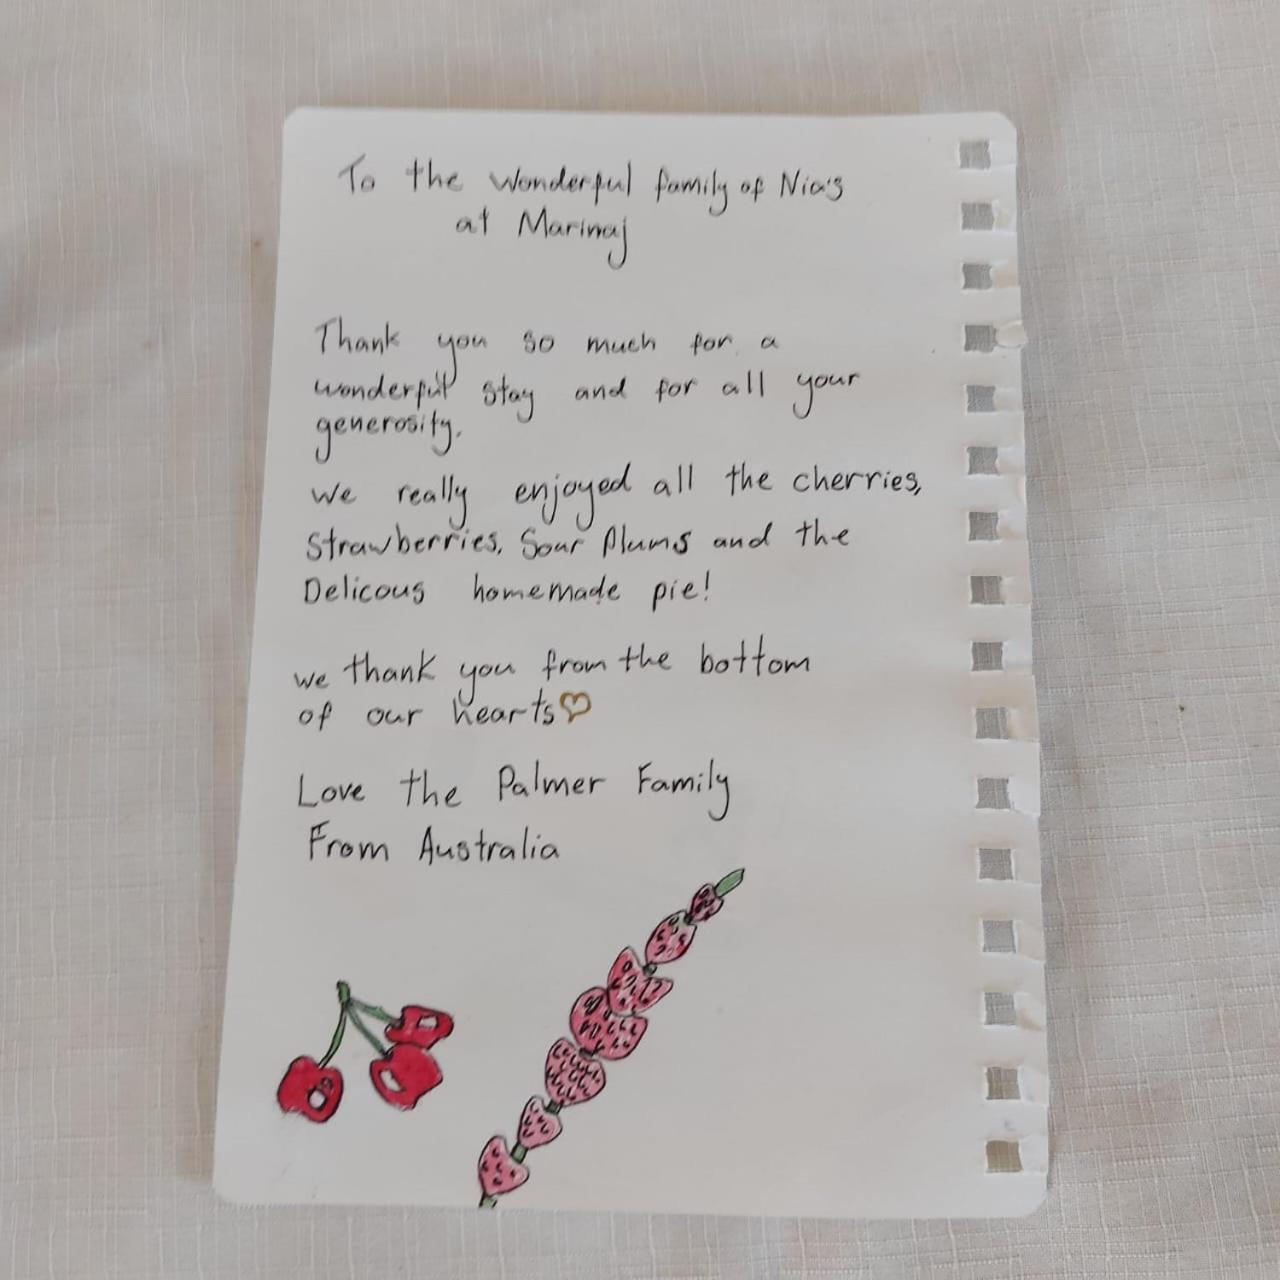 To the Wonderful family of Nia's
at Marinaj
Thank you so much for a
wonderful stay and for all your
generosity.
We really enjoyed all the cherries,
Strawberries, Sour Plums and the
Delicous homemade pie!
we thank you from the bottom
of our hearts
Love the Palmer Family
From Australia